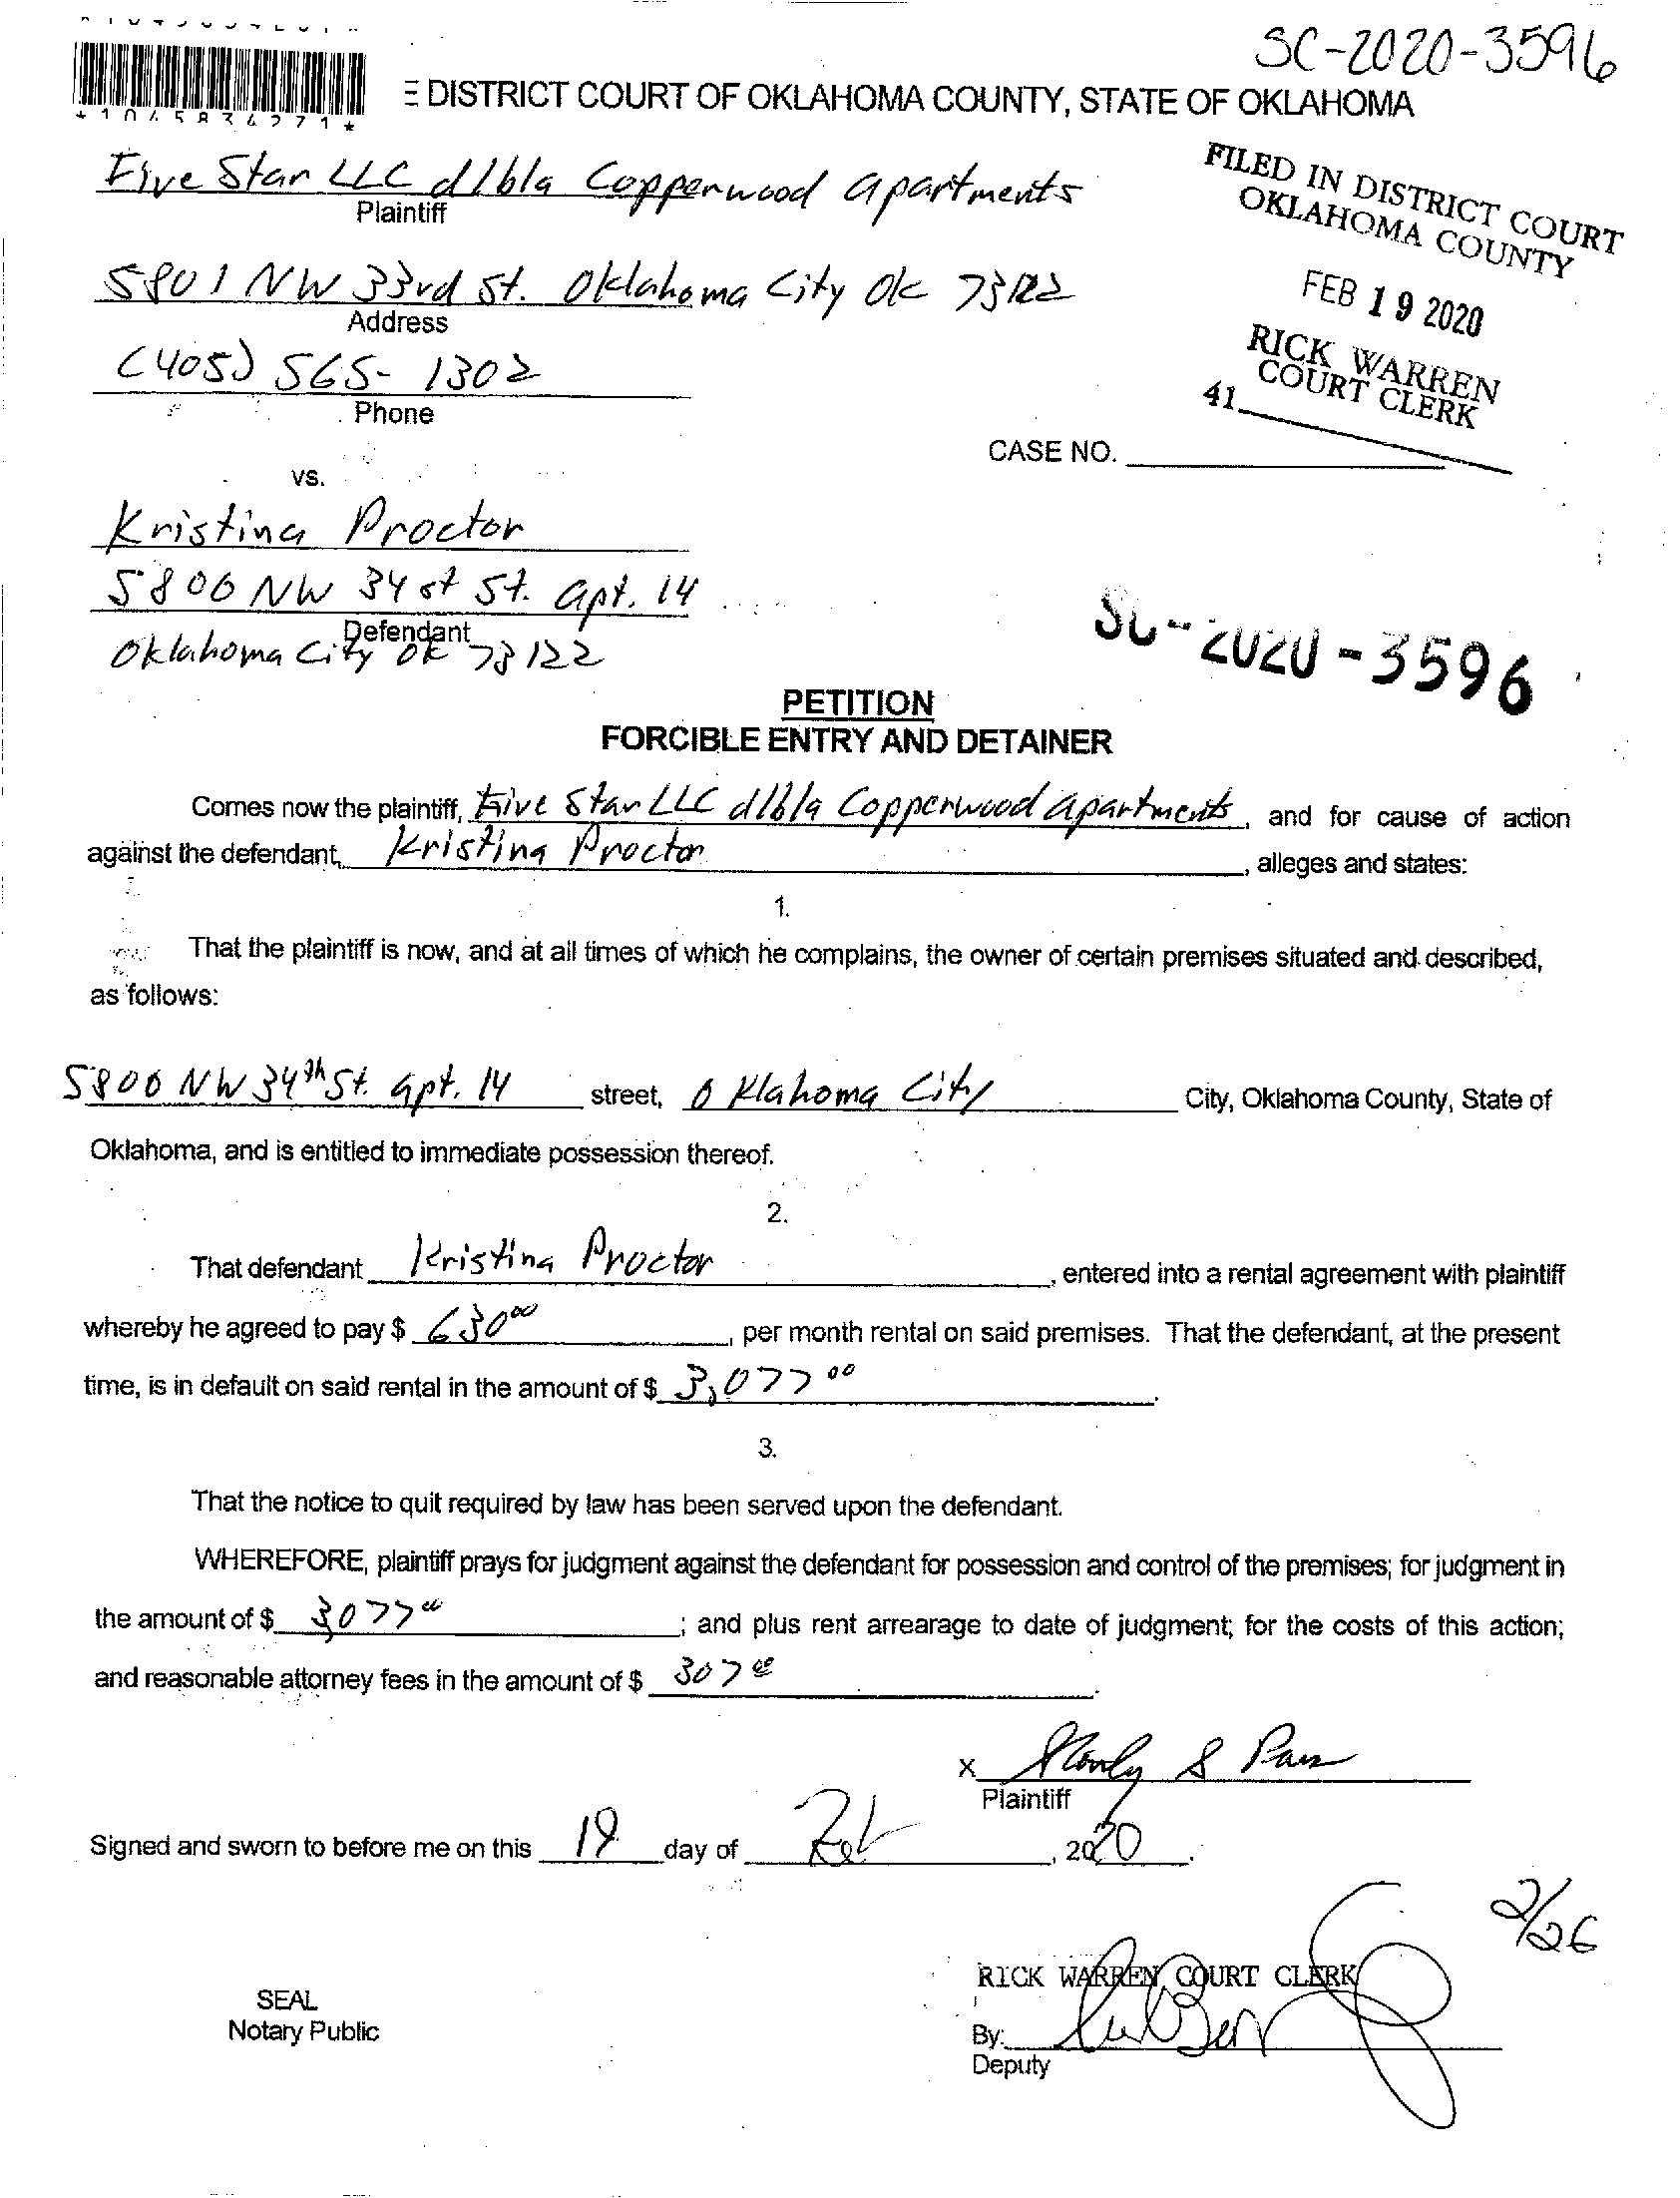 SC-2020-3596
DISTRICT COURT OF OKLAHOMA COUNTY, STATE OF OKLAHOMA
Five Star LLC d/b/a Copperwood apartments
Plaintiff
FILED IN DISTRICT COURT
OKLAHOMA COUNTY
FEB 19 2020
RICK WARREN
COURT CLERK
41
5801 NW 33rd St. Oklahoma City Ok 73122
Address
(405) 565-1302
Phone
CASE NO.
vs.
Kristina Proctor
5800 NW 34st St. apt. 14
Defendant
Oklahoma City Ok 73122
SC-2020-3596
PETITION
FORCIBLE ENTRY AND DETAINER
Comes now the plaintiff, Five Star LLC d/b/a Copperwood apartments, and for cause of action
against the defendant, Kristina Proctor, alleges and states:
1.
That the plaintiff is now, and at all times of which he complains, the owner of certain premises situated and described,
as follows:
5800 NW 34th St. apt. 14 street, Oklahoma City City, Oklahoma County, State of
Oklahoma, and is entitled to immediate possession thereof.
2.
That defendant Kristina Proctor, entered into a rental agreement with plaintiff
whereby he agreed to pay $ 630 00, per month rental on said premises. That the defendant, at the present
time, is in default on said rental in the amount of $ 3,077 00.
3.
That the notice to quit required by law has been served upon the defendant.
WHEREFORE, plaintiff prays for judgment against the defendant for possession and control of the premises; for judgment in
the amount of $ 3,077 00; and plus rent arrearage to date of judgment; for the costs of this action;
and reasonable attorney fees in the amount of $ 307 00.
X
Plaintiff
Signed and sworn to before me on this 19 day of Feb, 2020.
2/26
RICK WARREN COURT CLERK
SEAL
Notary Public
By:
Deputy